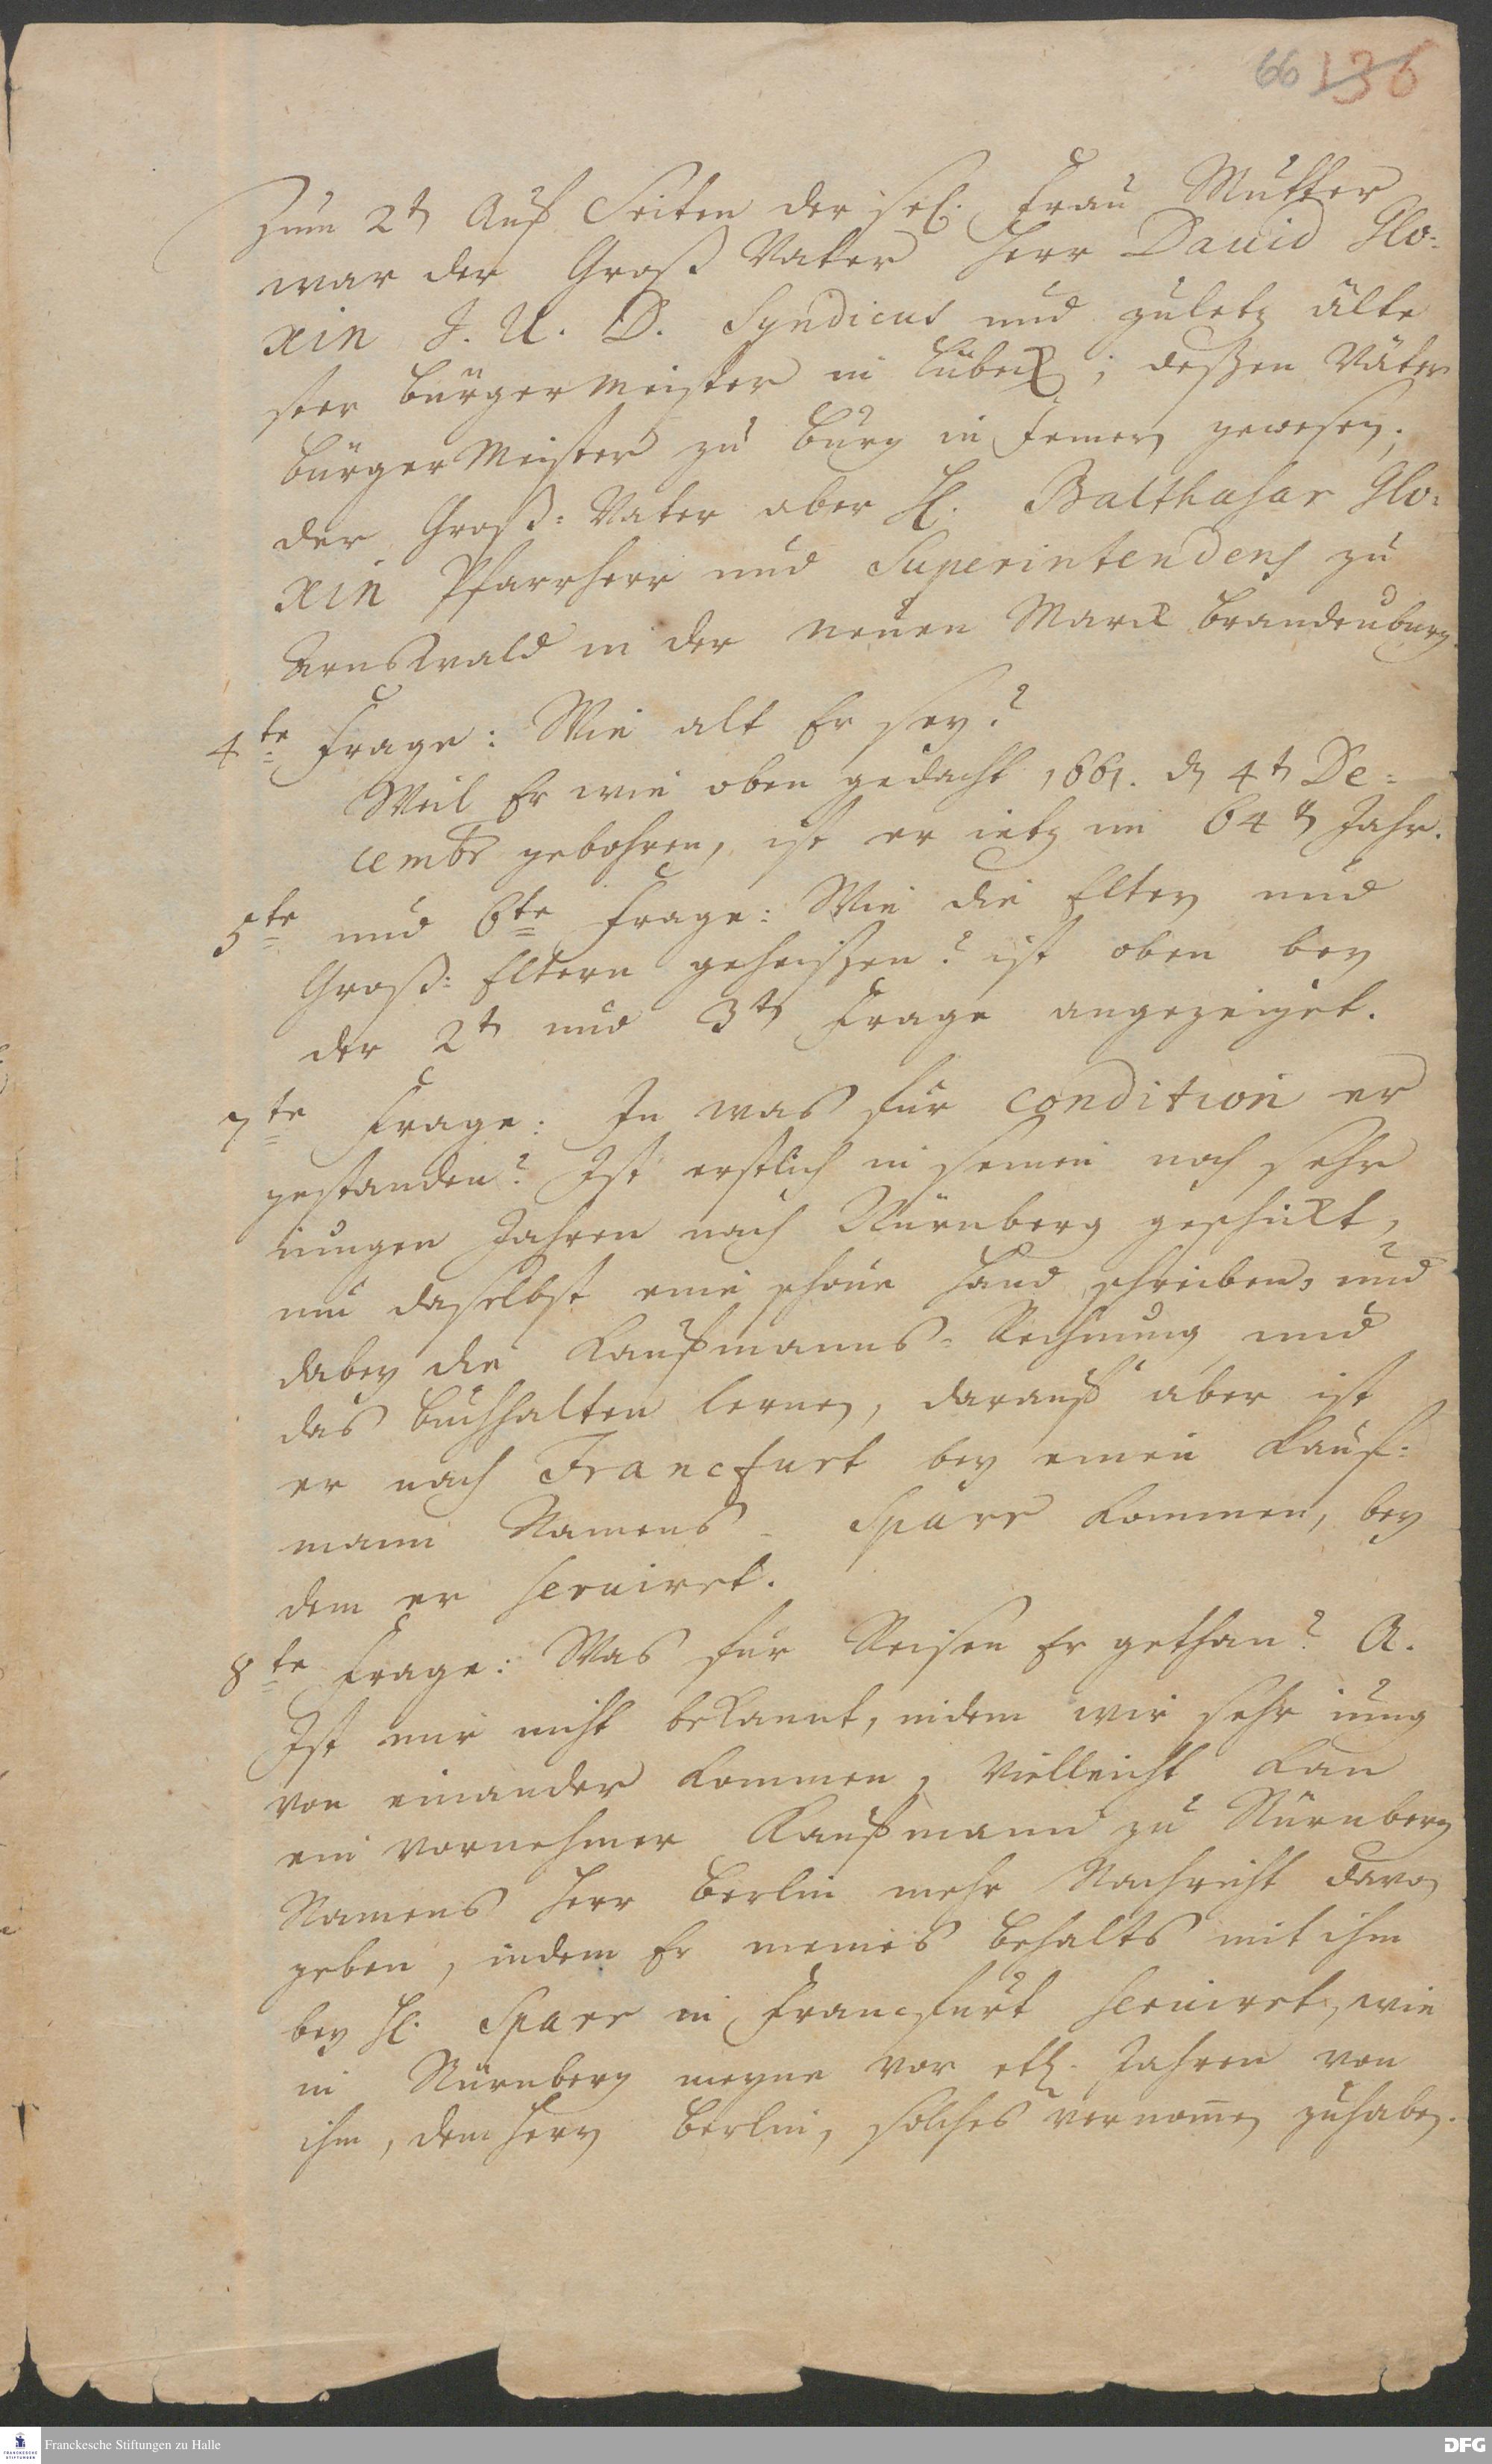 66 136
Zum 2ten Auf Seiten der sel. Frau Mutter
war der Groß Vater Herr David Glo-
xin J. U. D. Syndicus und zuletz älte
ster Bürgermeister in Lübeck; deßen Vater
Bürger Meister zu Burg in Femern gewesen;
der Groß-Vater aber H. Balthasar Glo-
xin Pfarrherr und Superintendens zu
Arnswald in der neuen Marck Brandenburg.
4te Frage: Wie alt Er sey?
Weil Er wie oben gedacht 1661. den 4ten De-
cembr gebohren, ist er ietz im 64ten Jahr.
5te und 6te Frage: Wie die Eltern und
Groß-Eltern geheißen? ist oben bey
der 2ten und 3ten Frage angezeiget.
7te Frage: In was für condition er
gestanden? Ist erstlich in seinen noch sehr
iungen Jahren nach Nürnberg geschickt,
um daselbst eine schöne Hand schreiben, und
dabey die Kauffmanns-Rechnung und
das Buchhalten lernen, darauf aber ist
er nach Francfurt bey einen Kauf-
mann Namens Sparr kommen, bey
dem er serviret.
8te Frage: Was für Reisen Er gethan? A.
Ist mir nicht bekannt, indem wir sehr iung
von einander kommen, vielleicht kan
ein vornehmer Kauffmann zu Nürnberg
Namens Herr Berlin mehr Nachricht davon
geben, indem Er meines Behalts mit ihm
bey H. Sparr in Francfurt serviret, wie
in Nürnberg meyne vor etl. Jahren von
ihm, dem Herrn Berlin, solches vernomen zuhaben.
Franckesche Stiftungen zu Halle
DFG